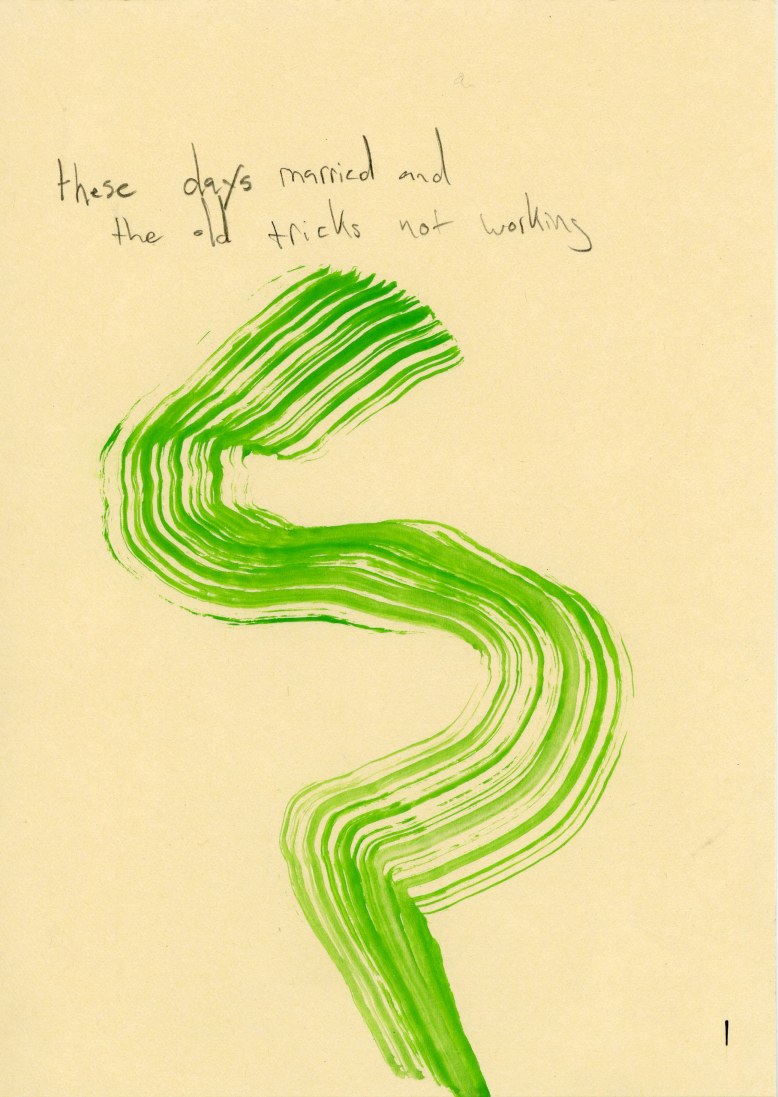 these days married and
the old tricks not working
1